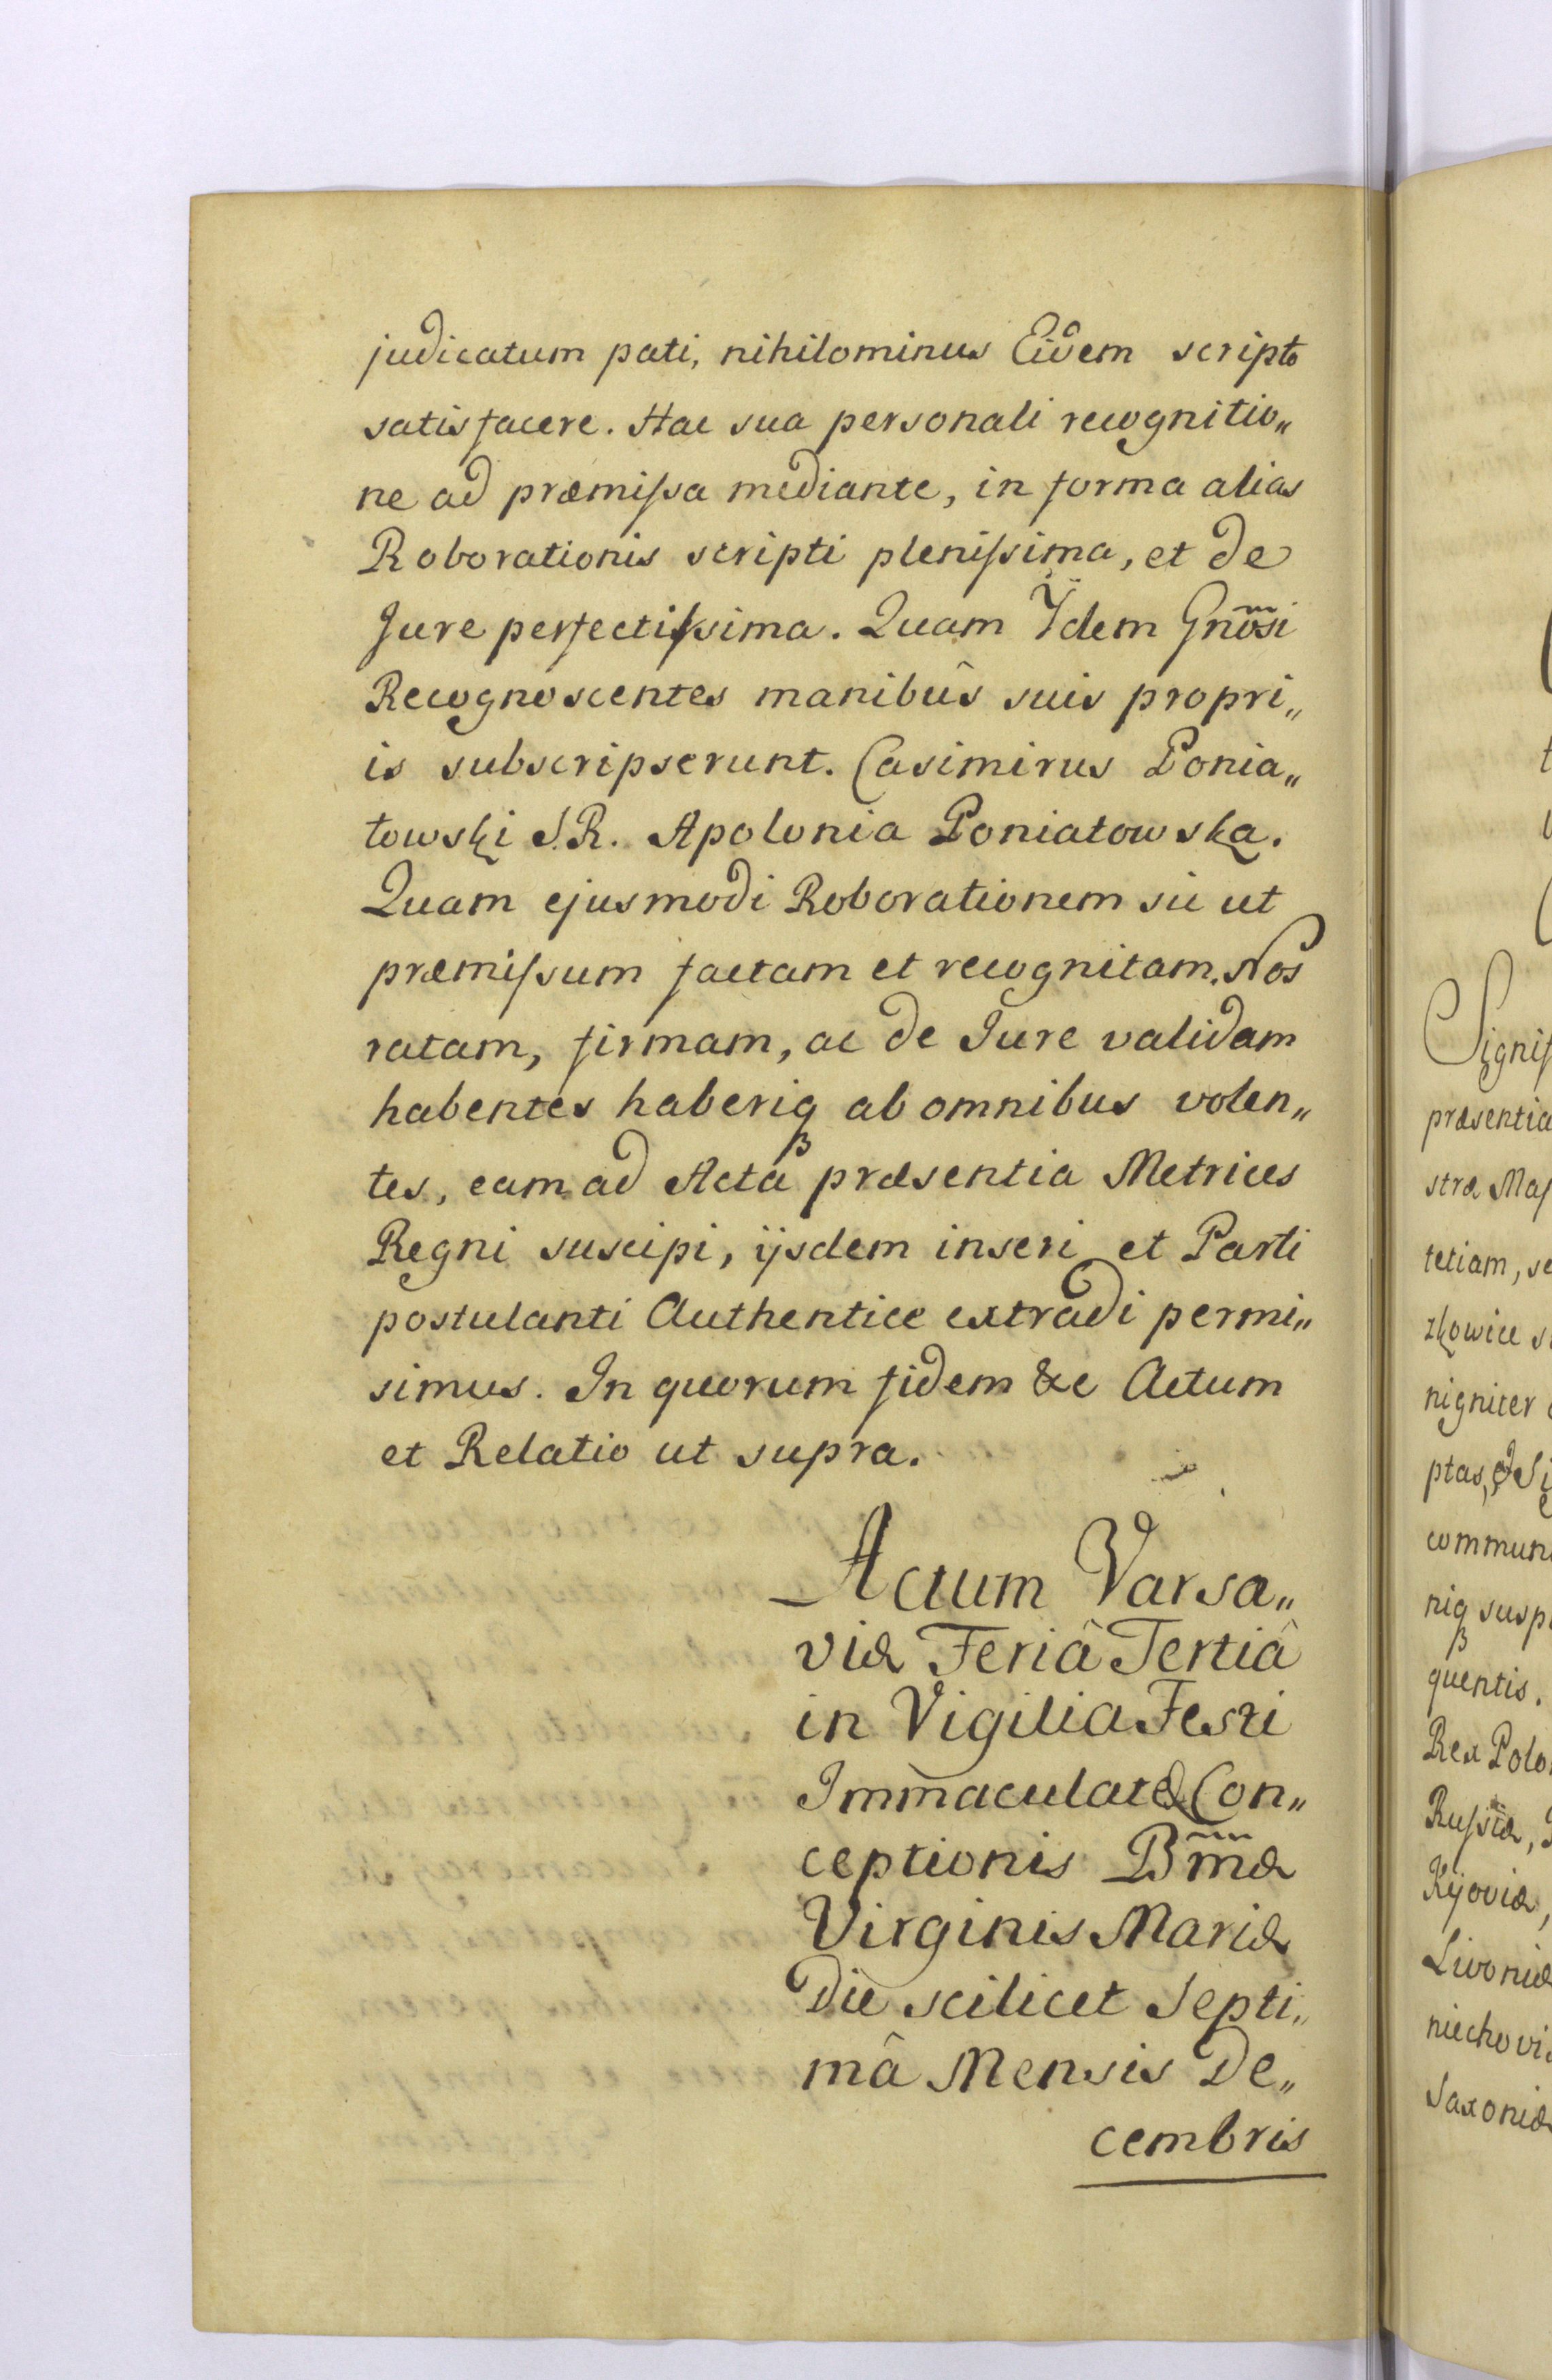 judicatum pati, nihilominus Eidem scripto
satisfacere. Hac sua personali recognitio„
ne ad præmissa mediante, in forma alias
Roborationis scripti plenissima, et de
Jure perfectissima. Quam Ïdem Gnõsi
Recognoscentes manibûs suis propri„
is subscripserunt. Casimirus Ponia„
towski S.R. Apolonia Poniatowska.
Quam ejusmodi Roborationem sic ut
præmissum factam et recognitam. Nos
ratam, firmam, ac de Jure validam
habentes haberiq ab omnibus volen„
tes, eam ad Acta præsentia Metrices
Regni suscipi, ijsdem inseri et Parti
postulanti Authentice extradi permi„
simus. In quorum fidem &c Actum
et Relatio ut supra.
Actum Varsa„
viæ Feriâ Tertiâ
in Vigilia Festi
Immaculatæ Con„
ceptionis Bm̃æ
Virginis Mariæ
Die scilicet Septi„
mâ Mensis De„
cembris
præsentia
stræ Maj
tetiam, se
zkowice
nigniter
ptas, &
commun
niq susp
quentis.
Rex Polo
Russiæ,
Kijoviæ,
Livoniæ
niechovi
Saxoniæ